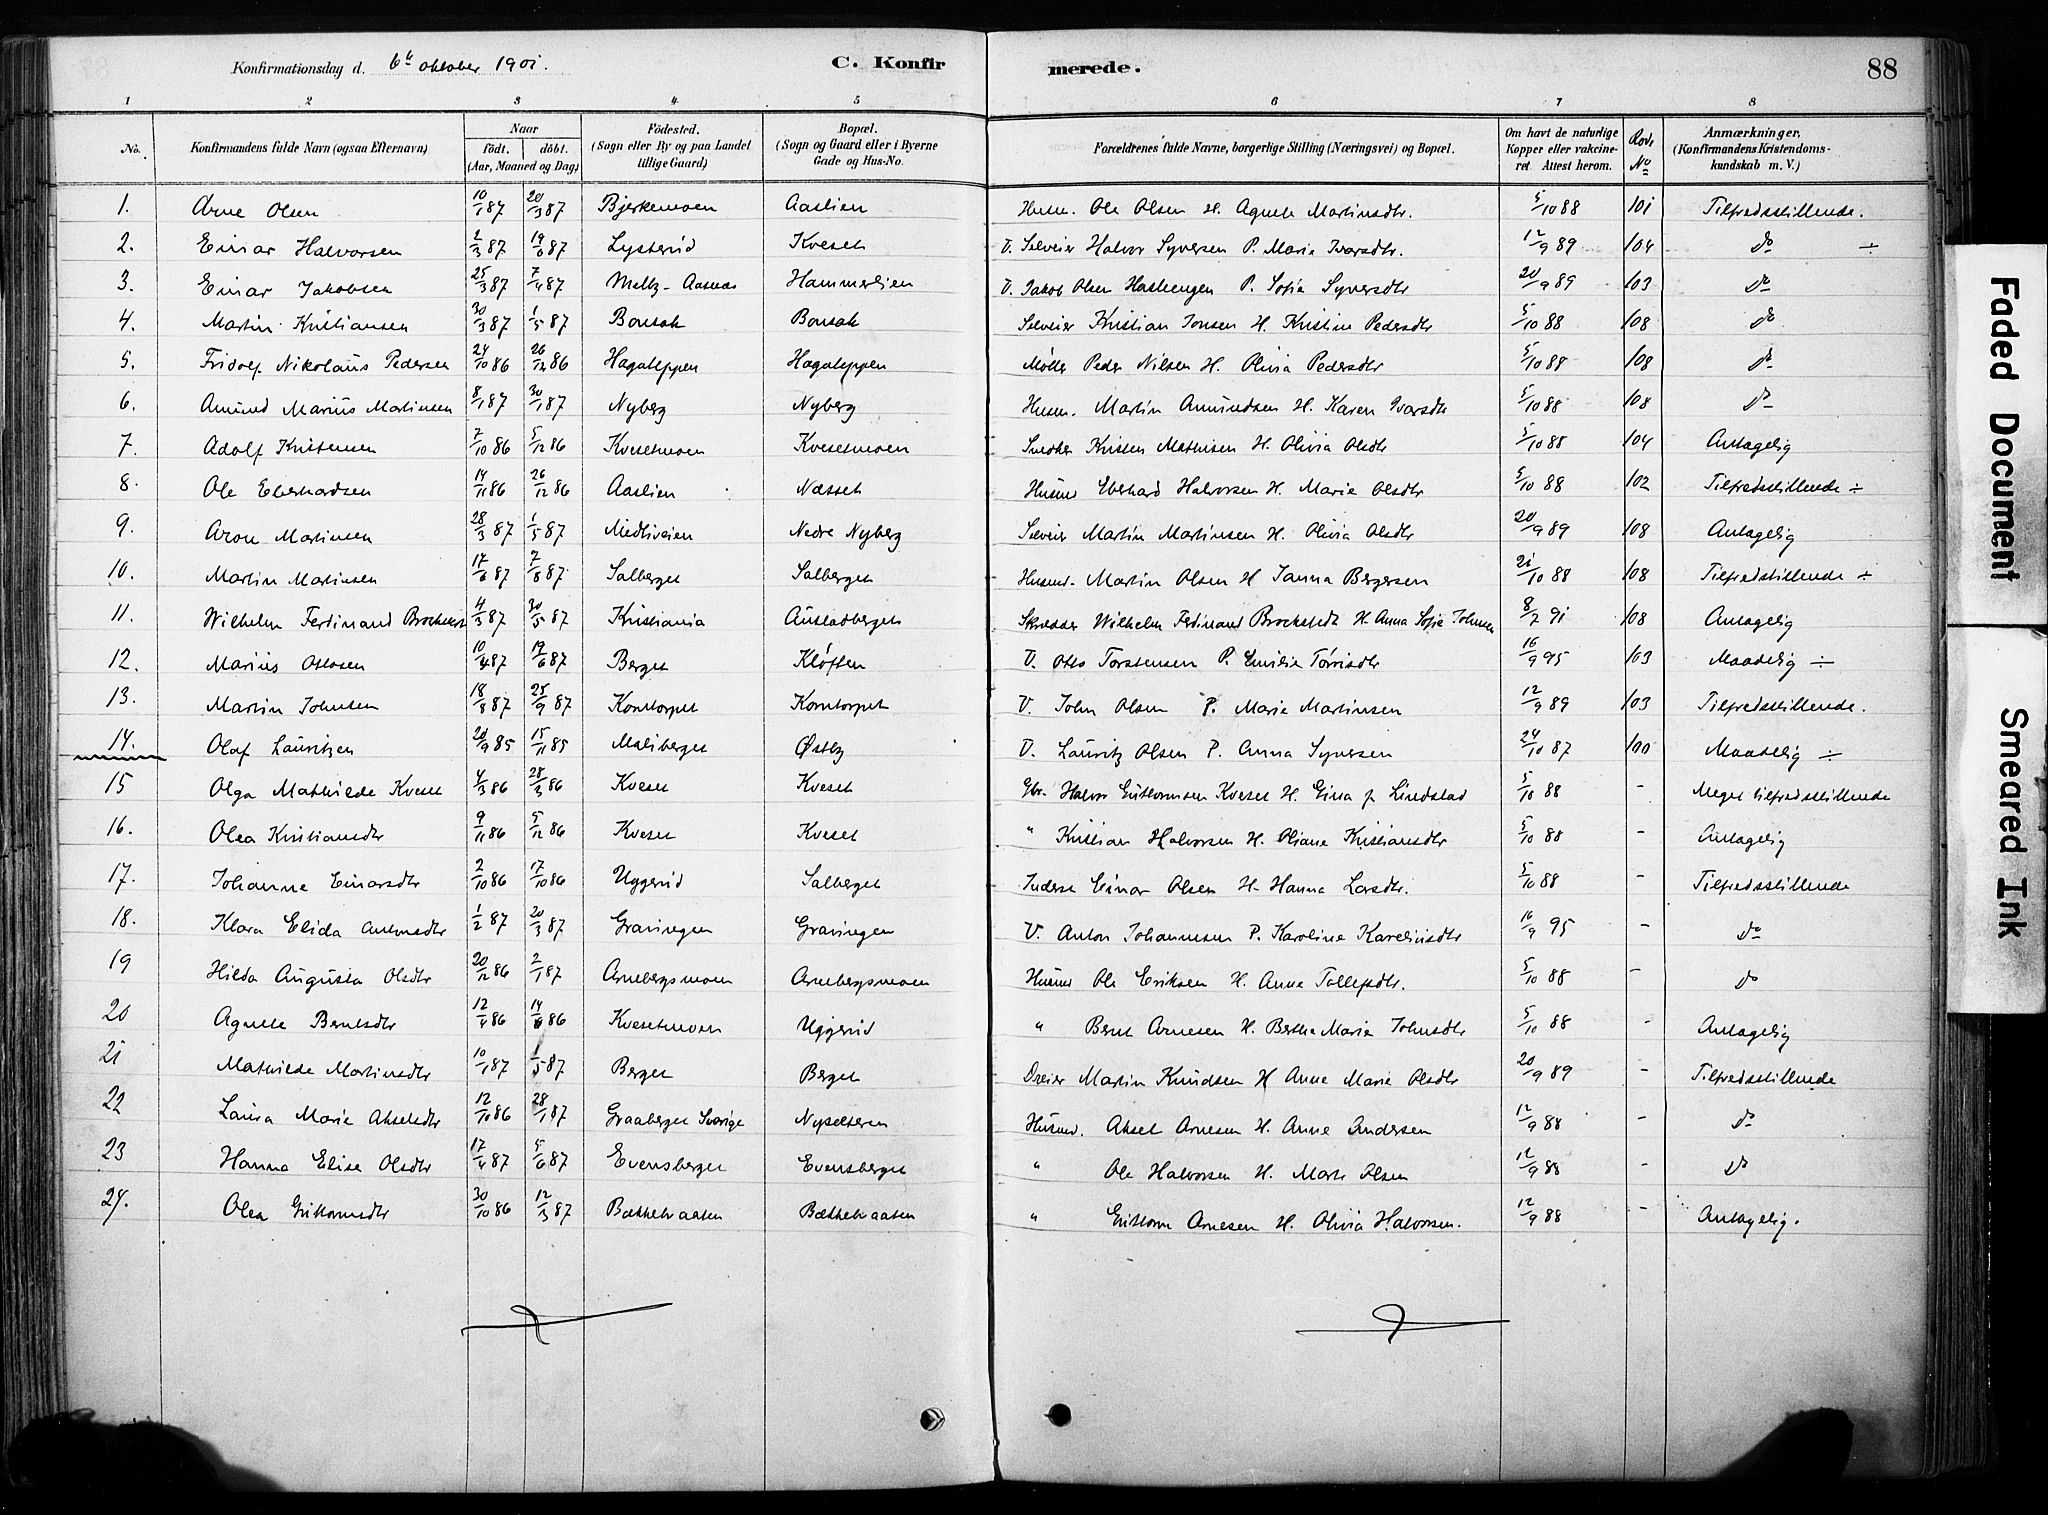 Konfirmationsdag d. 6te oktober 1901. C. Konfir merede. 88
1 2 3 4 5 6 7 8
No. Konfirmandens fulde Navn (ogsaa Efternavn) Naar født. døbt. (Aar, Maaned og Dag) Fødested. (Sogn eller By og paa Landet tillige Gaard) Bopæl. (Sogn og Gaard eller i Byerne Gade og Hus-No. Forældrenes fulde Navne, borgerlige Stilling (Næringsvei) og Bopæl. Om havt de naturlige Kopper eller vakcineret Attest herom. Rode No Anmærkninger. (Konfirmandens Kristendomskundskab m. V.)
1. Arne Olsen 10/1 87 20/3 87 Bjerkemoen Aaslien Husm. Ole Olsen H. Agnete Martinsdtr. 5/10 88 101 Tilfredsstillende.
2. Einar Halvorsen 2/3 87 19/6 87 Lysterud Kveset U. Selveier Halvor Syversen P. Marie Ivarsdtr. 12/9 89 104 do ÷
3. Einar Jakobsen 25/3 87 7/4 87 Mellg-Aasnæs Hammerlien U. Jakob Olsen P. Sofie Syversdtr 20/9 89 103 do
4. Martin Kristiansen 30/3 87 1/5 87 Bonsak Bonsak Selveier Kristian Jonsen H. Kristine Pedersdtr 5/10 88 108 do
5. Fridolf Nikolaus Pedersen 24/10 86 26/12 86 Hagaleppen Hagaleppen Møller Peder Nilsen H. Olivia Pedersdtr 5/10 88 108 do
6. Amund Marius Martinsen 8/1 87 30/1 87 Nyberg Nyberg Husm. Martin Amundsen H. Karen Ivarsdtr 5/10 88 108 do
7. Adolf Kristensen 7/10 86 5/12 86 Kvesetmoen Kvesetmoen Snedker Kristen Mathisen H. Olivia Olsdtr 5/10 88 104 Antagelig
8. Ole Eberhardsen 14/11 86 26/12 86 Aaslien Næsset Husmd Eberhard Halvorsen H. Marie Olsdtr 5/10 88 102 Tilfredsstillende ÷
9. Aron Martinsen 28/3 87 1/5 87 Medliveien Nedre Nyberg Selveier Martin Martinsen H. Olivia Olsdtr 20/9 89 108 Antagelig
10. Martin Martinsen 17/6 87 7/8 87 Salberget Salberget Husmd. Martin Olsen H Janna Bergersen 21/10 88 108 Tilfredsstillende ÷
11. Wilhelm Ferdinand Brockstedt 4/3 87 30/5 87 Kristiania Austadberget Skrædder Wilhelm Ferdinand Brockstedt H. Anna Sofie Johnsen 8/7 91 108 Antagelig
12. Marius Ottosen 10/4 87 19/6 87 Berget Kløften U. Otto Torstensen P. Emilie Tørrisdtr 16/9 95 103 Maadelig ÷
13. Martin Johnsen 18/8 87 25/9 87 Korntorpet Korntorpet U. John Olsen P. Marie Martinsen 12/9 89 103 Tilfredsstillende.
14. Olaf Lauritzen 20/9 85 15/11 85 Maliberget Østby U. Lauritz Olsen P. Anna Syversen 24/10 87 100 Maadelig ÷
15 Olga Mathilde Kveset 4/3 86 28/3 86 Kveset Kveset Gbr. Halvor Guttormsen Kveset H. Gina f. Lindstad 5/10 88 - Meget tilfredsstillende
16. Olea Kristiansdtr 9/11 86 5/12 86 Kveset Kveset " Kristian Halvorsen H. Oliane Kristiansdtr 5/10 88 - Antagelig
17. Johanne Einarsdtr 2/10 86 17/10 86 Uggerud Salberget Inderst Einar Olsen H. Hanna Larsdtr. 5/10 88 - Tilfredsstillende
18. Klara Elida Antonsdtr 1/2 87 20/3 87 Graningen Graningen U. Anton Johannesen P. Karoline Karelinsdtr 16/9 95 - do
19 Hilda Augusta Olsdtr 20/12 86 2/1 87 Arnebergsmoen Arnebergsmoen Husmd Ole Eriksen H. Anne Tollefsdtr. 5/10 88 - do
20 Agnete Berntsdtr 12/4 86 14/6 86 Kvesetmoen Uggerud " Bernt Arnesen H. Berthe Marie Johnsdtr 5/10 88 - Antagelig
21 Mathilde Martinsdtr 10/1 87 1/5 87 Berget Berget Dreier Martin Knudsen H Anne Marie Olsdtr 20/9 89 - Tilfredsstillende
22 Laura Marie Akselsdtr 12/10 86 28/1 87 Graaberget Sverige Nysæteren Husmd. Aksel Arnesen H. Anne Andersen 12/9 88 - do
23 Hanna Elise Olsdtr 17/4 87 5/6 87 Evensberget Evensberget " Ole Halvorsen H. Marte Olsen 12/9 88 - do
24. Olea Guttormsdtr 30/10 86 12/3 87 Bækkebraaten Bækkebraaten " Guttorm Arnesen H. Olivia Halvorsen. 12/9 88 - Antagelig.
Faded Document
Smeared Ink